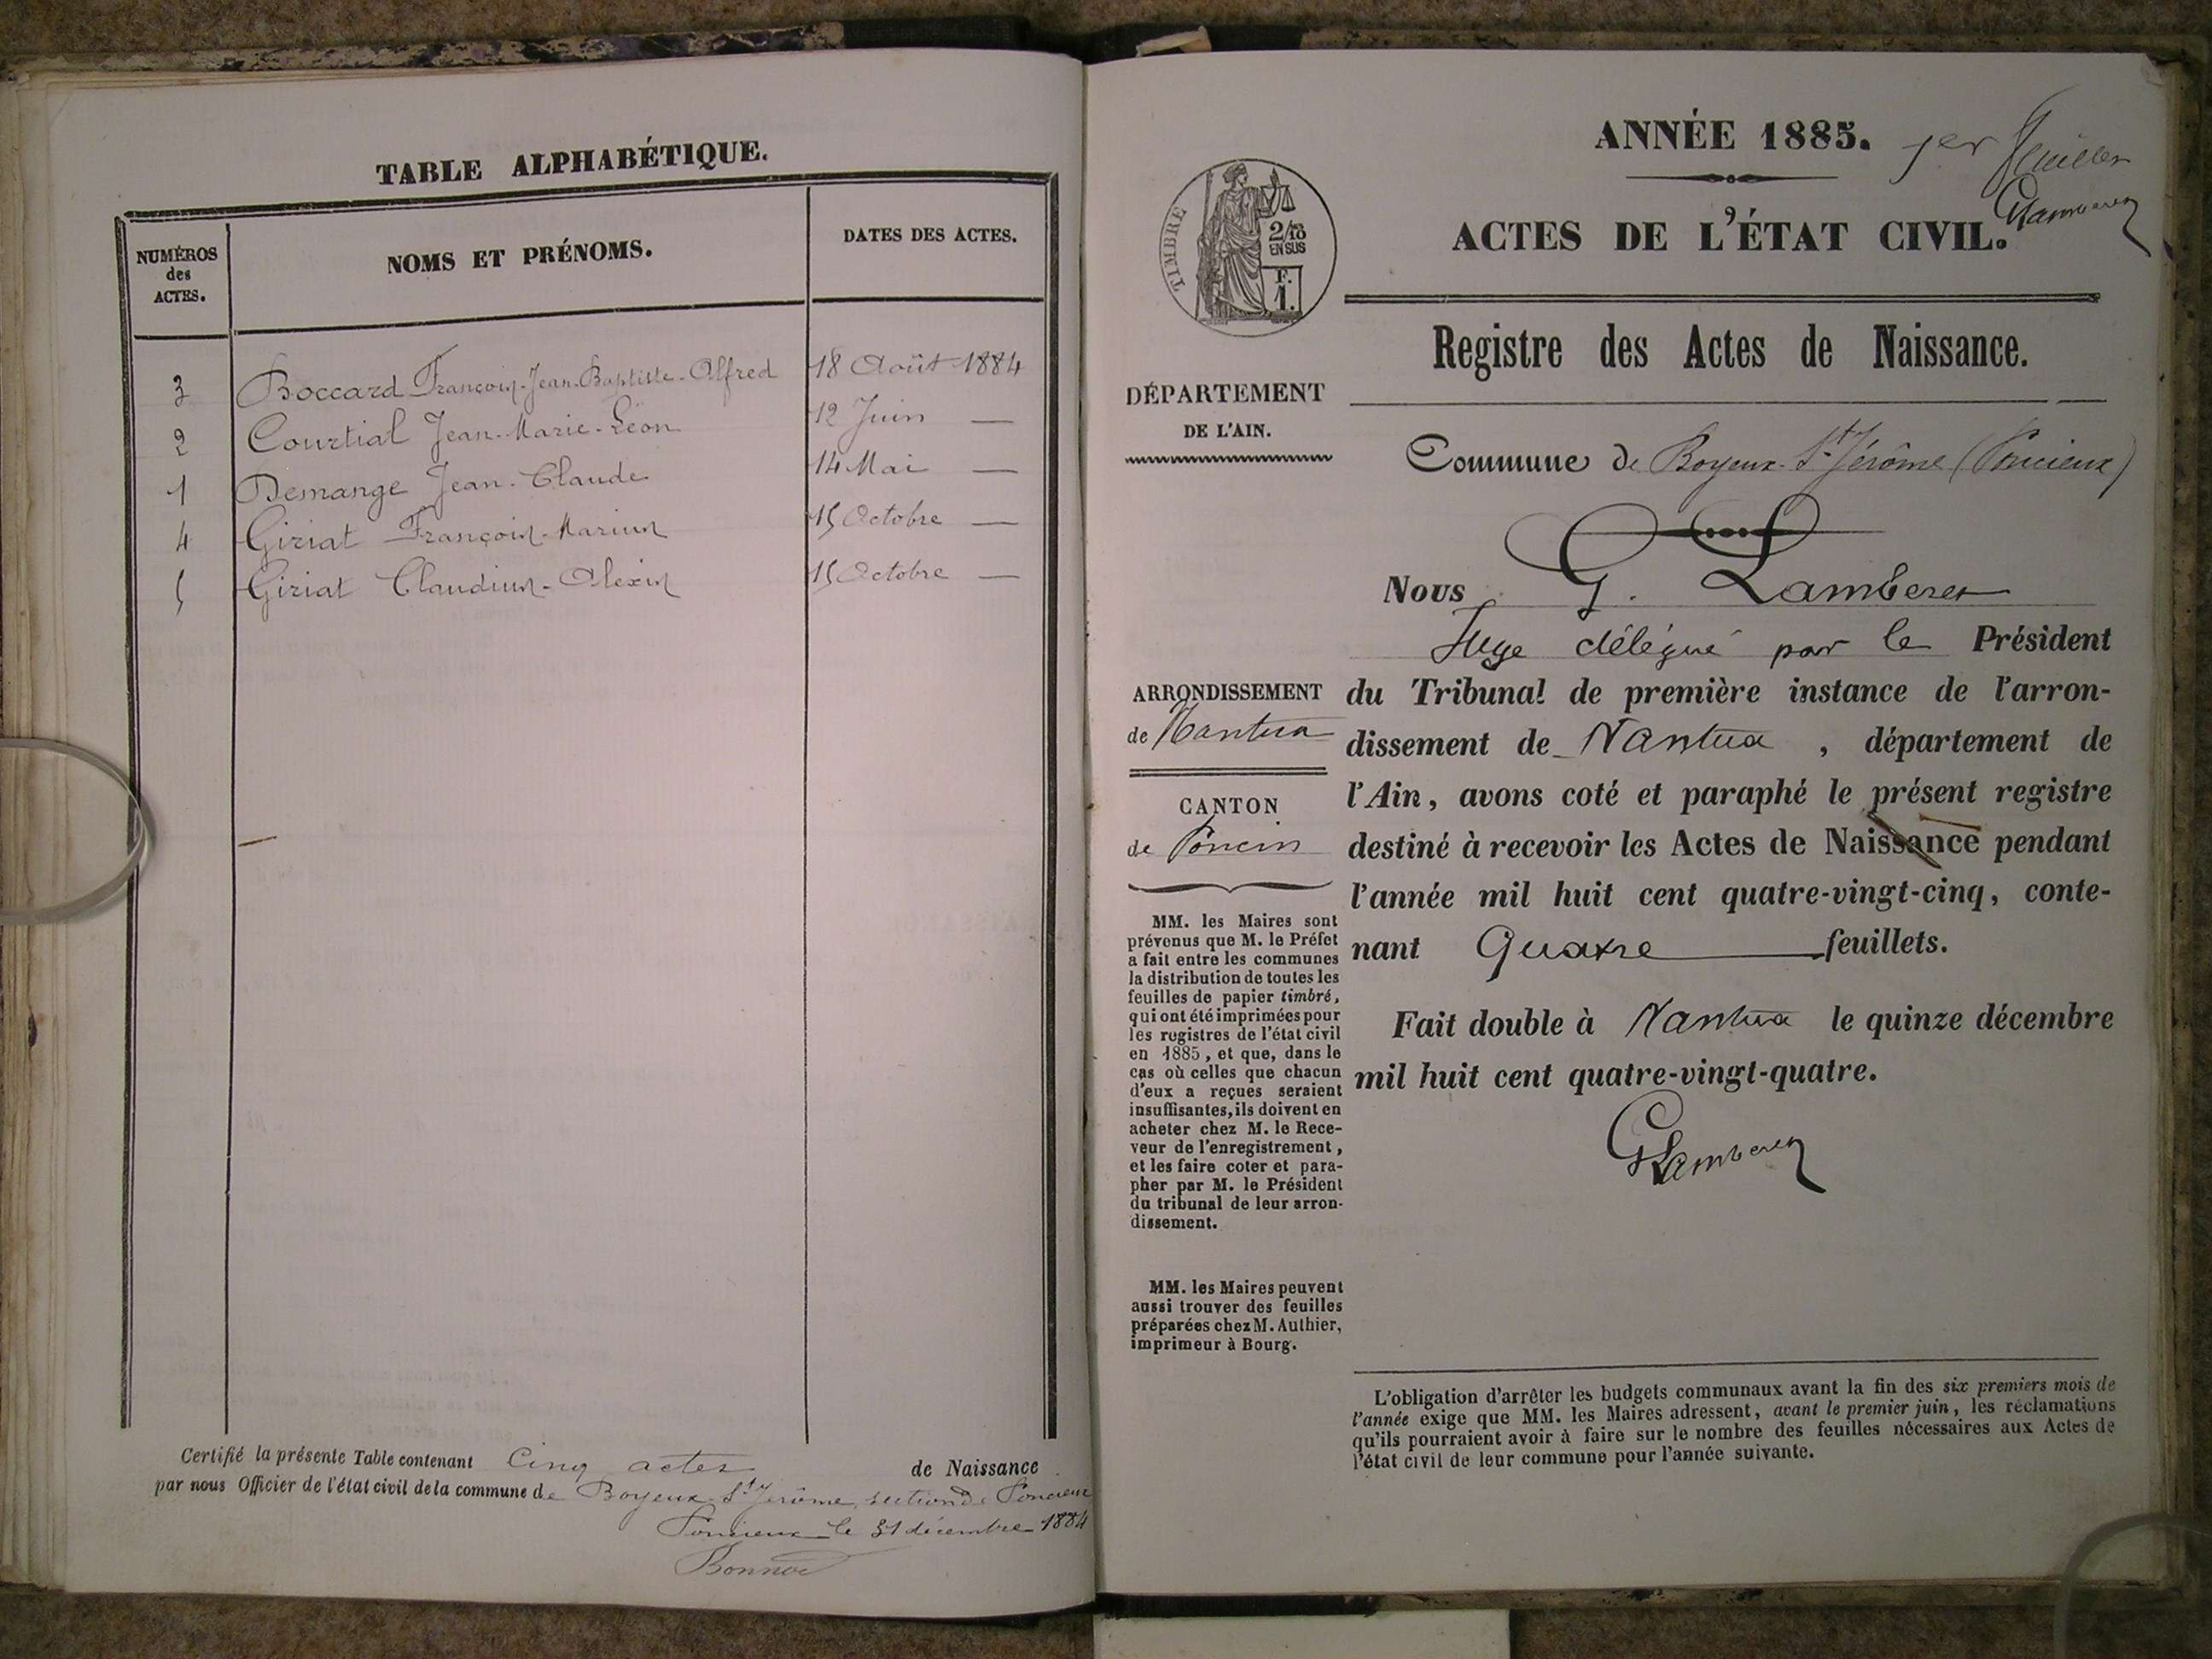 TABLE ALPHABÉTIQUE.
NUMÉROS
des
ACTES.
NOMS ET PRÉNOMS.
DATES DES ACTES.
3 Boccard François-Jean-Baptiste-Alfred 18 Août 1884
2 Courtial Jean-Marie-Léon 12 Juin —
1 Demange Jean-Claude 14 Mai —
4 Giriat François-Marius 15 Octobre —
5 Giriat Claudius-Alexis 15 Octobre —
Certifié la présente Table contenant Cinq actes de Naissance
par nous Officier de l'état civil de la commune de Boyeux-St Jérôme, section de Poncieux
Poncieux le 31 décembre 1884
ANNÉE 1885.
1er feuillet
GLamberet
ACTES DE L'ÉTAT CIVIL.
TIMBRE
2/10
EN SUS
F.
1.
Registre des Actes de Naissance.
DÉPARTEMENT
DE L'AIN.
Commune de Boyeux-St Jérôme (Poncieux)
Nous G. Lamberet
Juge délégué par le Président
ARRONDISSEMENT
de Nantua
du Tribunal de première instance de l'arron-
dissement de Nantua, département de
l'Ain, avons coté et paraphé le présent registre
destiné à recevoir les Actes de Naissance pendant
l'année mil huit cent quatre-vingt-cinq, conte-
nant Quatre feuillets.
Fait double à Nantua le quinze décembre
mil huit cent quatre-vingt-quatre.
GLamberet
CANTON
de Poncin
MM. les Maires sont
prévenus que M. le Préfet
a fait entre les communes
la distribution de toutes les
feuilles de papier timbré,
qui ont été imprimées pour
les registres de l'état civil
en 1885, et que, dans le
cas où celles que chacun
d'eux a reçues seraient
insuffisantes, ils doivent en
acheter chez M. le Rece-
veur de l'enregistrement,
et les faire coter et para-
pher par M. le Président
du tribunal de leur arron-
dissement.
MM. les Maires peuvent
aussi trouver des feuilles
préparées chez M. Authier,
imprimeur à Bourg.
L'obligation d'arrêter les budgets communaux avant la fin des six premiers mois de
l'année exige que MM. les Maires adressent, avant le premier juin, les réclamations
qu'ils pourraient avoir à faire sur le nombre des feuilles nécessaires aux Actes de
l'état civil de leur commune pour l'année suivante.